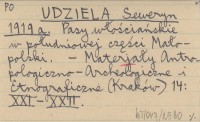 PO
UDZIELA Seweryn
1919 a. Pasy włościańskie
w południowej części Mało-
polski. – Materjały Antro-
pologiczno – Archeologiczne i
Etnograficzne (Kraków) 14:
XXI – XXII.